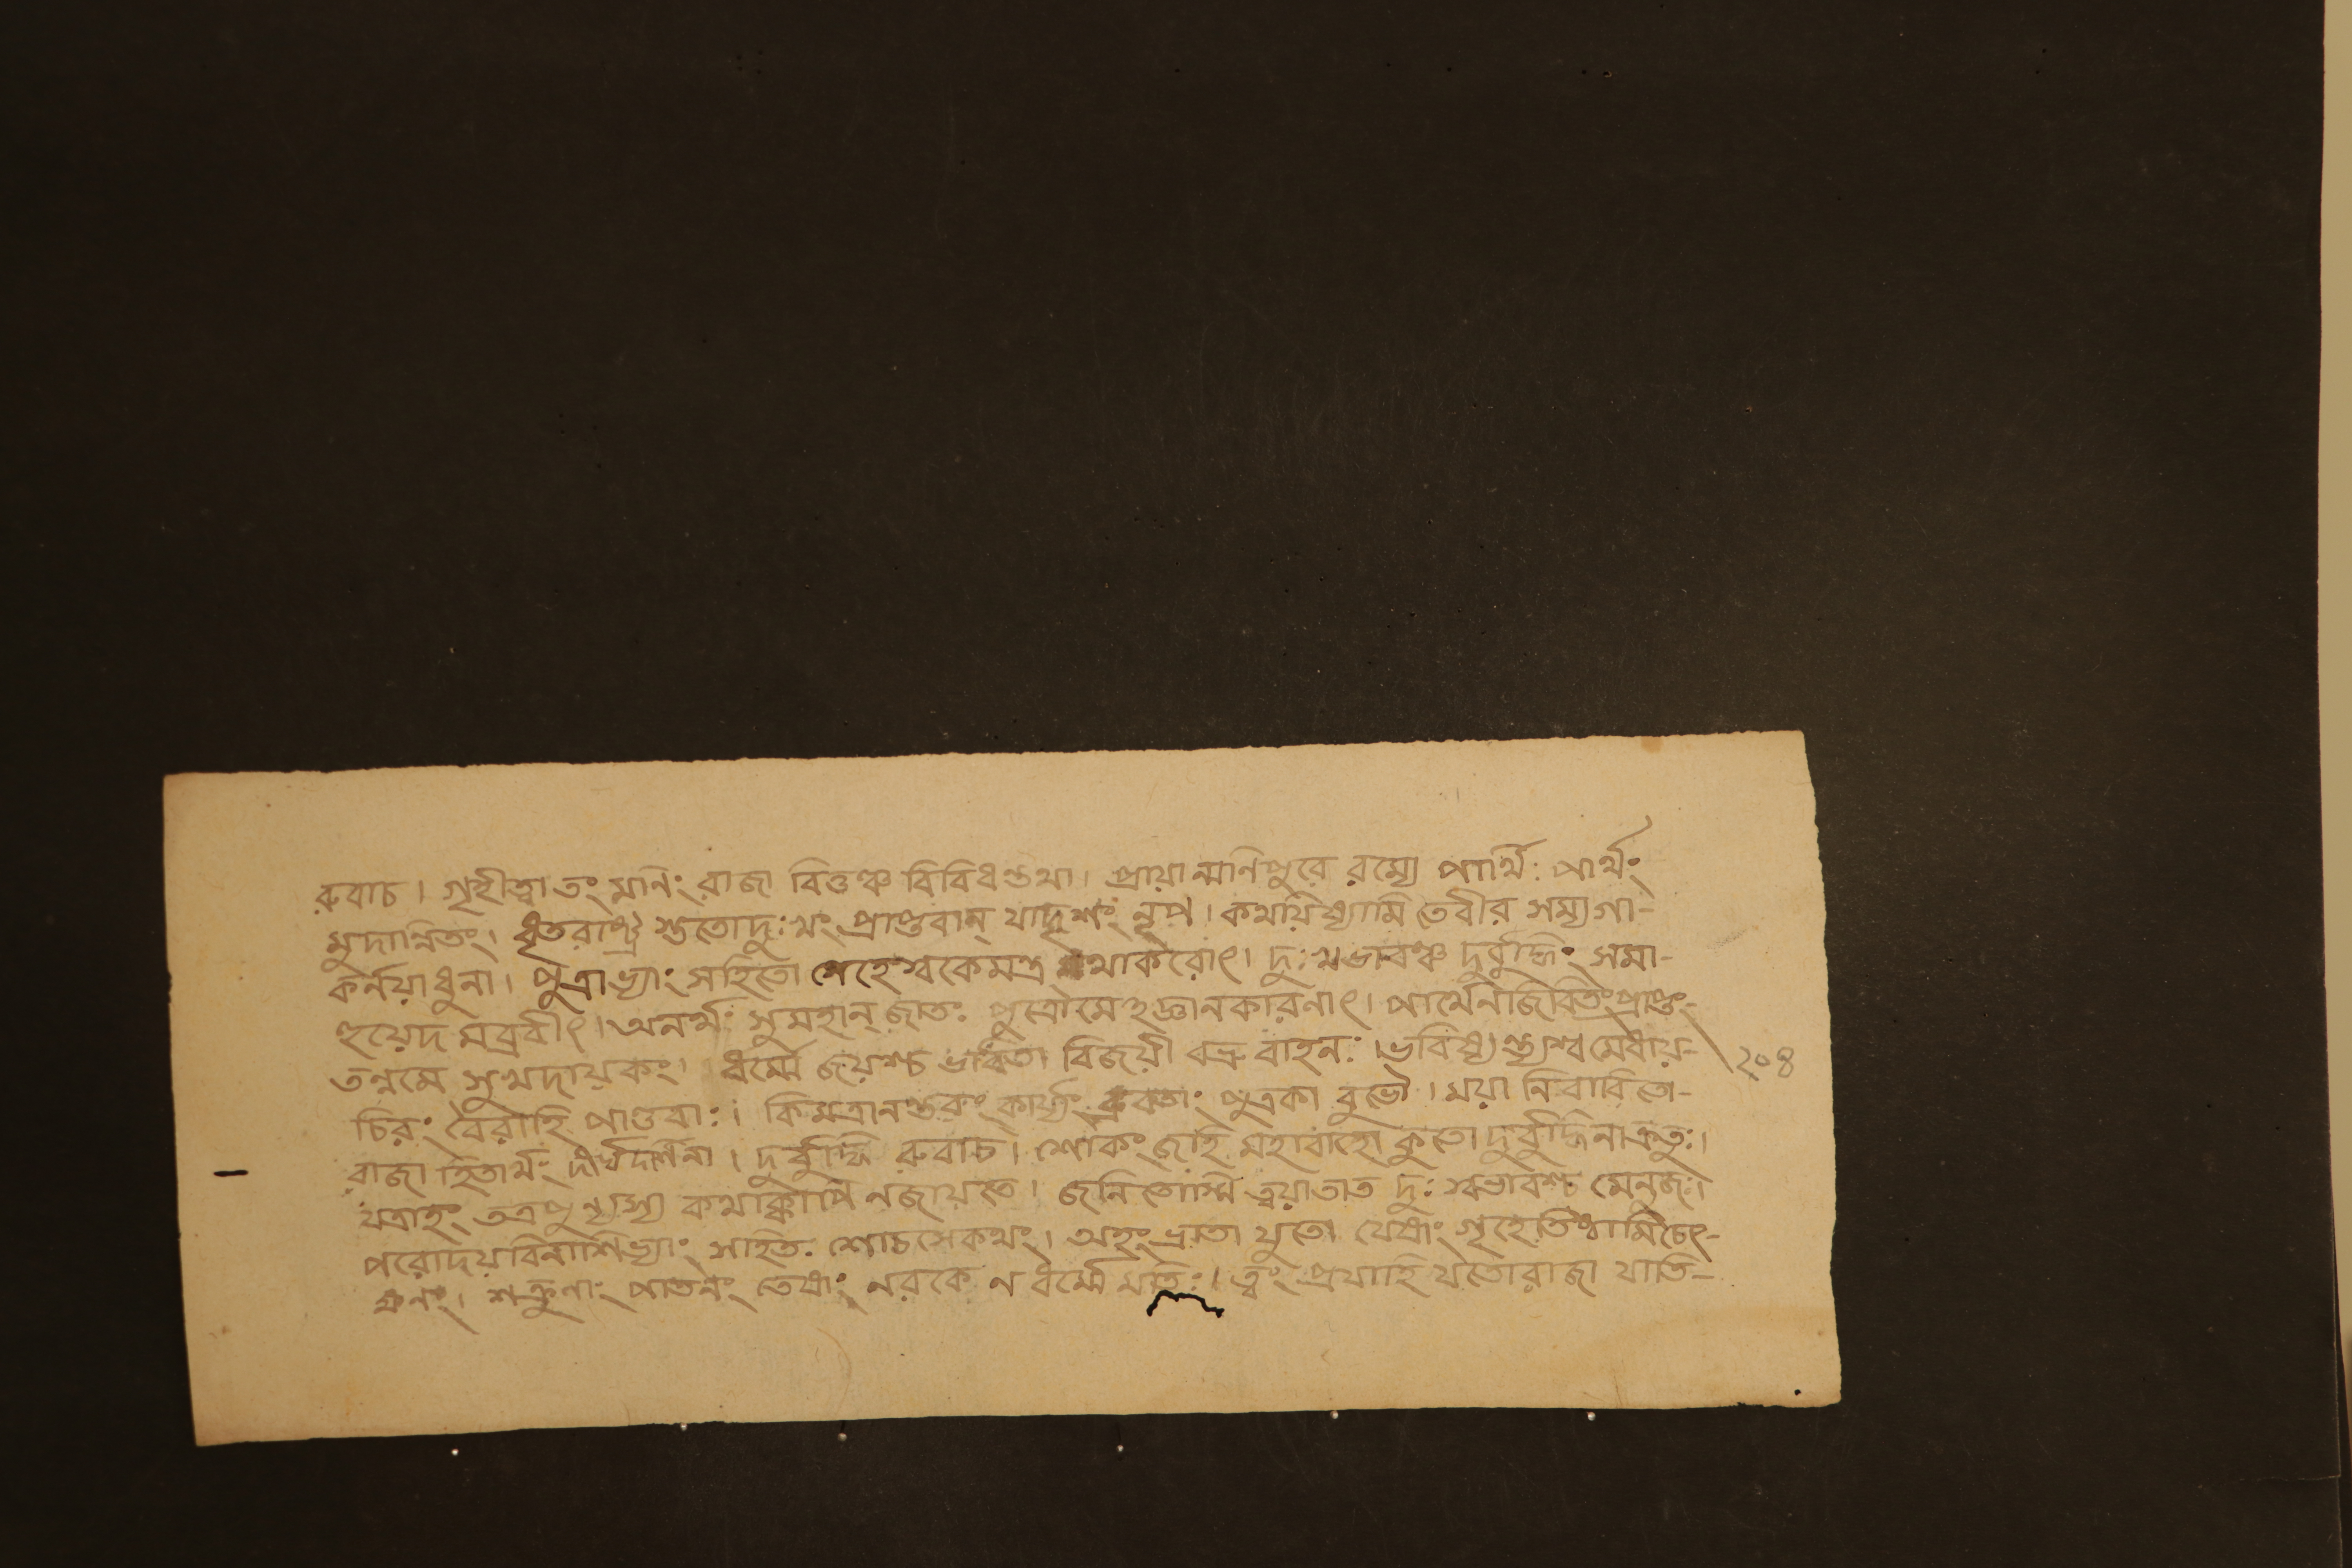 রুবাচ। গৃহীত্বা তং মনিং রাজা বিত্তঞ্চ বিবিধন্তথা। প্রায়ান্মনিপুরে রম্যে পার্থিঃ পার্থং
মুদান্বিতং। ধৃতরাষ্ট্র শুতোদুঃখং প্রাপ্তবান্ যাদৃশং নৃপ। কথয়িষ্যামি তেবীর সম্যগা-
কর্নয়াধুনা। পুত্রাভ্যাং সহিতো গেহেশ্বকেমন্ত্র মথাকরোৎ। দুঃখভাবঞ্চ দুর্বুদ্ধিং সমা-
হুয়েদ মব্রবীৎ। অনর্থঃ সুমহান্ জাতঃ পুত্রৌমেহজ্ঞানকারনাৎ। পার্থেনজিবিতংপ্রাপ্তং-
তন্নমে সুখদায়কং। ধর্ম্মো জয়শ্চ ভবিতা বিজয়ী বভ্রুবাহনঃ। ভবিষ্যন্ত্যশ্বমেধায়-
চিরং বৈরাহি পাণ্ডবাঃ। কিমত্রানন্তরং কার্য্যং ব্রুবতাং পুত্রকা বুভৌ। ময়া নিবারিতো-
রাজা হিতার্থং দীর্ঘদর্শিনা। দুর্বুদ্ধি রুবাচ। শোকং জহি মহাবাহো কুতো দুর্বুদ্ধিনাক্রতুঃ।
যত্রাহং তত্রপুন্যস্য কথাক্কাপি নজায়তে। জনিতোস্মি ত্বয়াতাত দুঃস্বভাবশ্চ মেনুজঃ।
পরোদয়বিনাশিভ্যাং সহিতঃ শোচসেকথং। অহংভ্রাতা যুতো যেষাং গৃহেতিষ্ঠামিচেৎ-
ক্ষনং। শত্রুণাং পাতনং তেষাং নরকে ন ধর্ম্মে মতিঃ। ত্বং প্রযাহি যতোরাজা যাতি-
২০৪